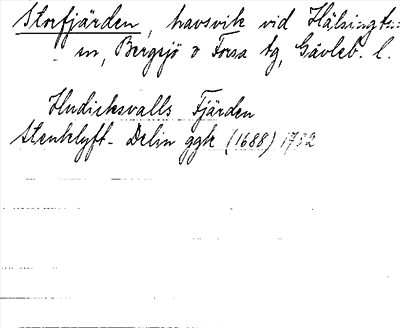 Storfjärden, havsvik vid Hälsingtu-
na, Bergsjö o Forsa tg, Gävleb. l.
Hudicksvalls Fjärden
Stenklyft-Delin ggk (1688) 1732